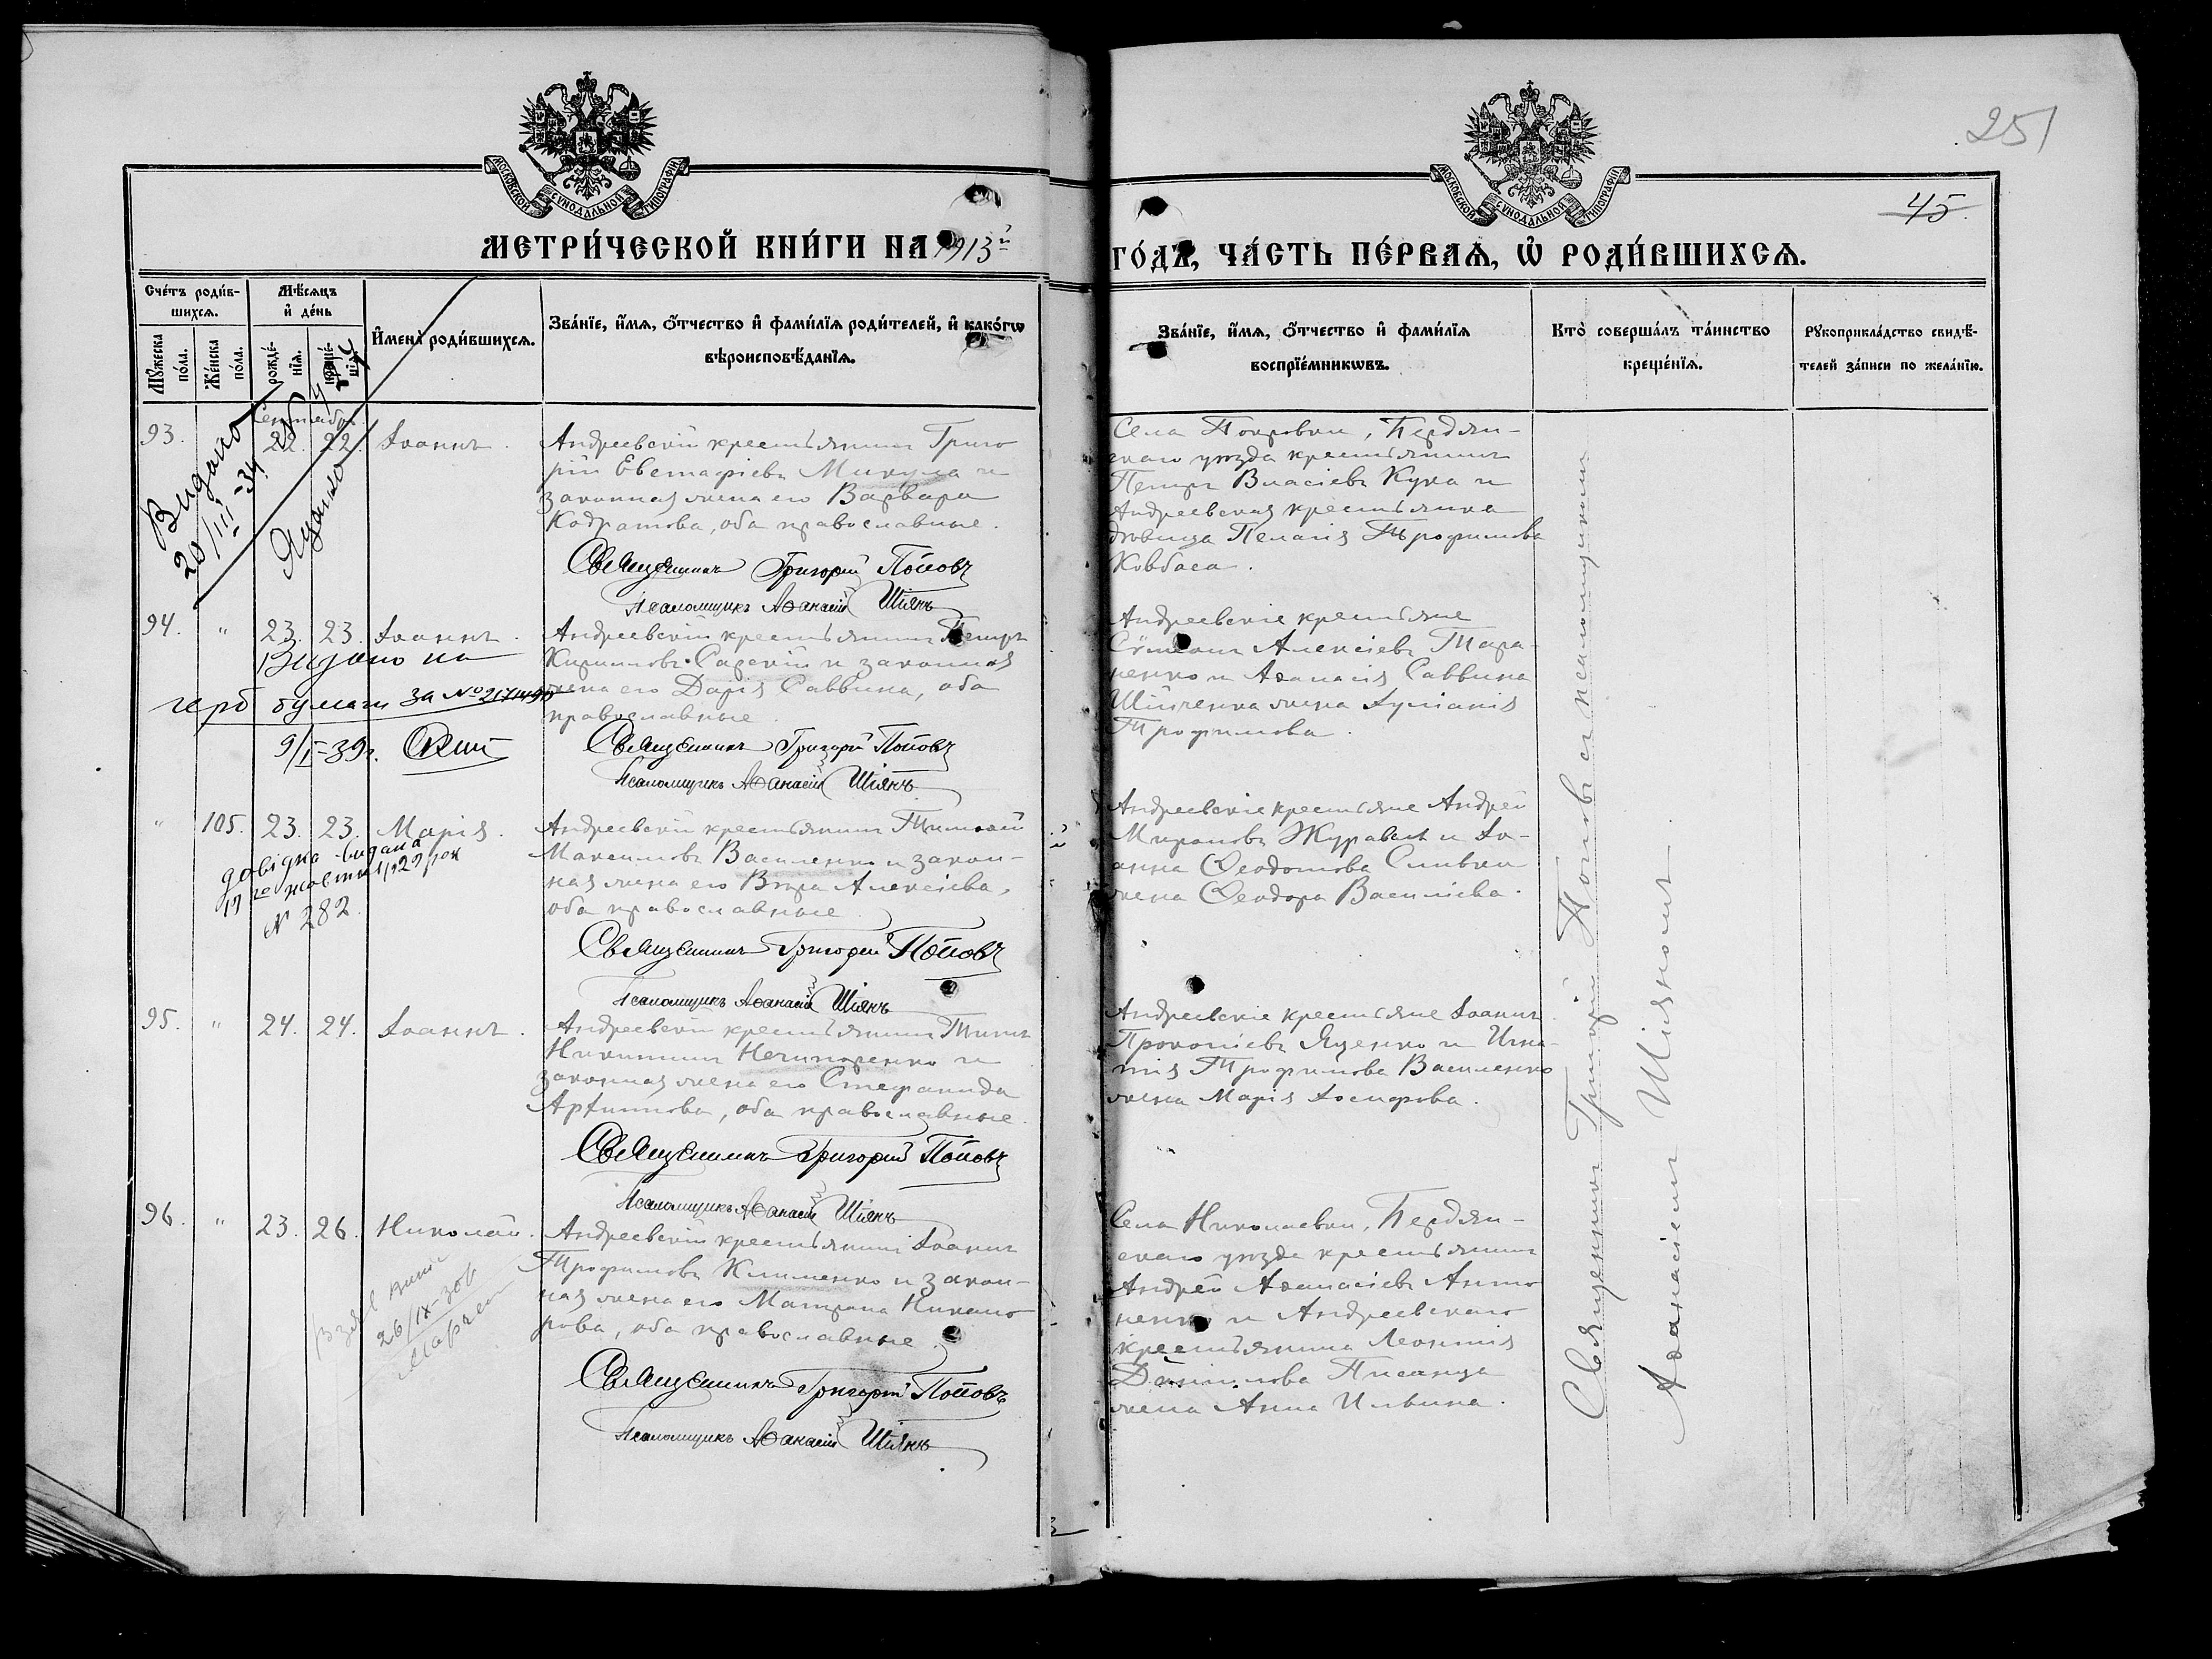 251
45.
МОСКОВСКОЙ СѴНОДАЛЬНОЙ ТИПОГРАФІИ
МОСКОВСКОЙ СѴНОДАЛЬНОЙ ТИПОГРАФІИ
МЕТРИ́ЧЕСКОЙ КНИ́ГИ НА 1913й
ГО́ДЪ, ЧА́СТЬ ПЕ́РВАѦ, Ѡ҆ РОДИ́ВШИХСѦ.
Сче́тъ роди́в-
шихсѧ.
Мꙋ́жеска по́ла.
Же́нска по́ла.
Мѣ́сѧцъ
и҆ де́нь
рожде́-
нїѧ.
креще́-
нїѧ.
И҆мена̀ роди́вшихсѧ.
Зва́нїе, и҆́мѧ, ѻ҆́тчество и҆ фами́лїѧ роди́телей, и҆ како́гѡ
вѣроисповѣ́данїѧ.
Зва́нїе, и҆́мѧ, ѻ҆́тчество и҆ фами́лїѧ
воспрїе́мникѡвъ.
Кто̀ соверша́лъ та́инство
креще́нїѧ.
Рꙋкоприкла́дство свидѣ́-
телей за́писи по жела́нїю.
Сентябрь
93. 22. 22. Іоаннъ.
Андреевскій крестьянинъ Григо
рій Евстафіевъ Микула и
законная жена его Варвара
Кодратова, оба православные.
Священникъ Григорій Поповъ
Псаломщикъ Аѳанасій Шіянъ
Села Покровки, Бердян-
скаго уѣзда крестьянинъ
Петръ Власіевъ Кука и
Андреевская крестьянка
дѣвица Пелагія Трофимова
Ковбаса.
Видано
20/III-34
94. " 23. 23. Іоаннъ.
Андреевскій крестьянинъ Петръ
Кирилловъ Садскій и законная
жена его Дарія Саввина, оба
православные.
Священникъ Григорій Поповъ
Псаломщикъ Аѳанасій Шіянъ
Андреевскіе крестьяне
Сѵмеонъ Алексіевъ Тара-
ненко и Аѳанасія Саввина
Шійченка жена Іуліанія
Трофимова.
Видано на
герб бумаги за №
9/I-39г.
" 105. 23. 23. Марія.
Андреевскій крестьянинъ Тимоѳей
Максимовъ Василенко и закон-
ная жена его Вѣра Алексіева,
оба православные
Священникъ Григорій Поповъ
Псаломщикъ Аѳанасій Шіянъ
Андреевскіе крестьяне Андрей
Мироновъ Журавель и Іо-
анна Ѳеодотова Сливки
жена Ѳеодора Василіева.
довідка видана
19 го жовтня 1922 рок
№ 282
95. " 24. 24. Іоаннъ.
Андреевскій крестьянинъ Титъ
Никитинъ Нечипоренко и
законная жена его Стефанида
Артимова, оба православные.
Священникъ Григорій Поповъ
Псаломщикъ Аѳанасій Шіянъ
Андреевскіе крестьяне Іоаннъ
Прокопіевъ Яценко и Игна-
тія Трофимова Василенко
жена Марія Іосифова.
96. " 23. 26. Николай.
Андреевскій крестьянинъ Іоаннъ
Трофимовъ Клименко и закон-
ная жена его Матрона Никано
рова, оба православные.
Священникъ Григорій Поповъ
Псаломщикъ Аѳанасій Шіянъ
Села Николаевки, Бердян-
скаго уѣзда крестьянинъ
Андрей Аѳанасіевъ Анто
ненко и Андреевскаго
крестьянина Леонтія
Даніилова Писанца
жена Анна Ильина.
26/IX-30г
Священникъ Григорій Поповъ съ псаломщикомъ
Аѳанасіемъ Шіяномъ.